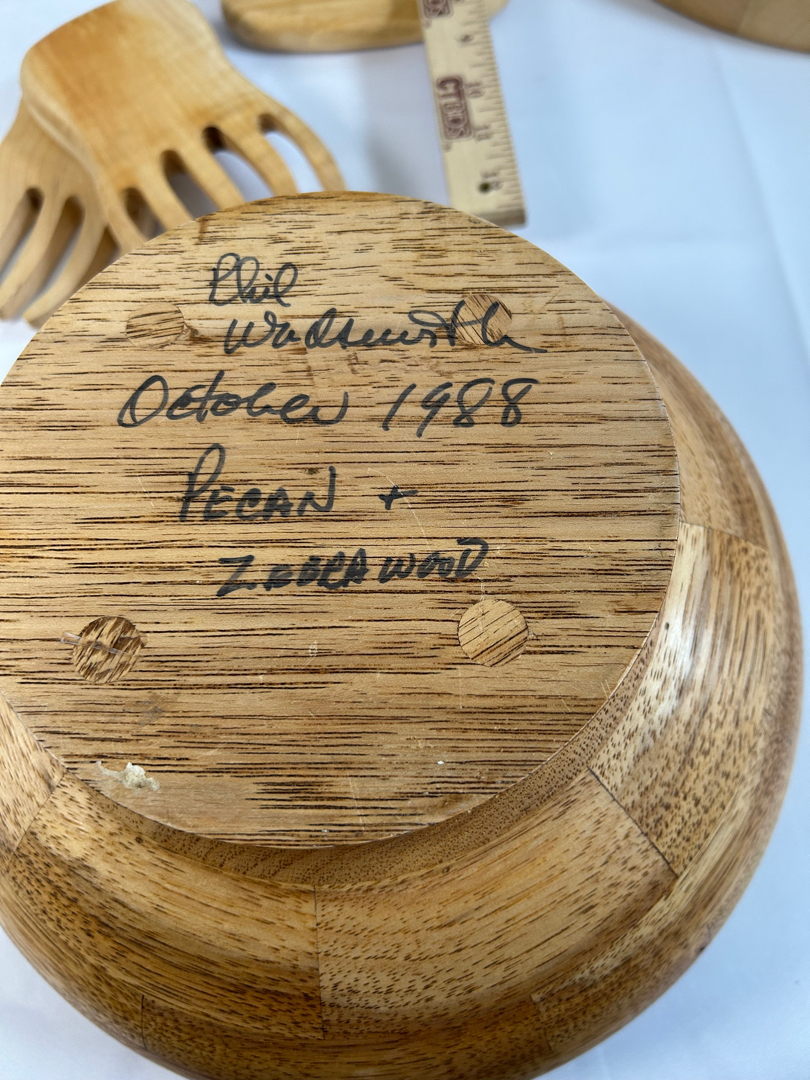 Phil
Wadsworth
October 1988
PECAN +
ZEBRA WOOD